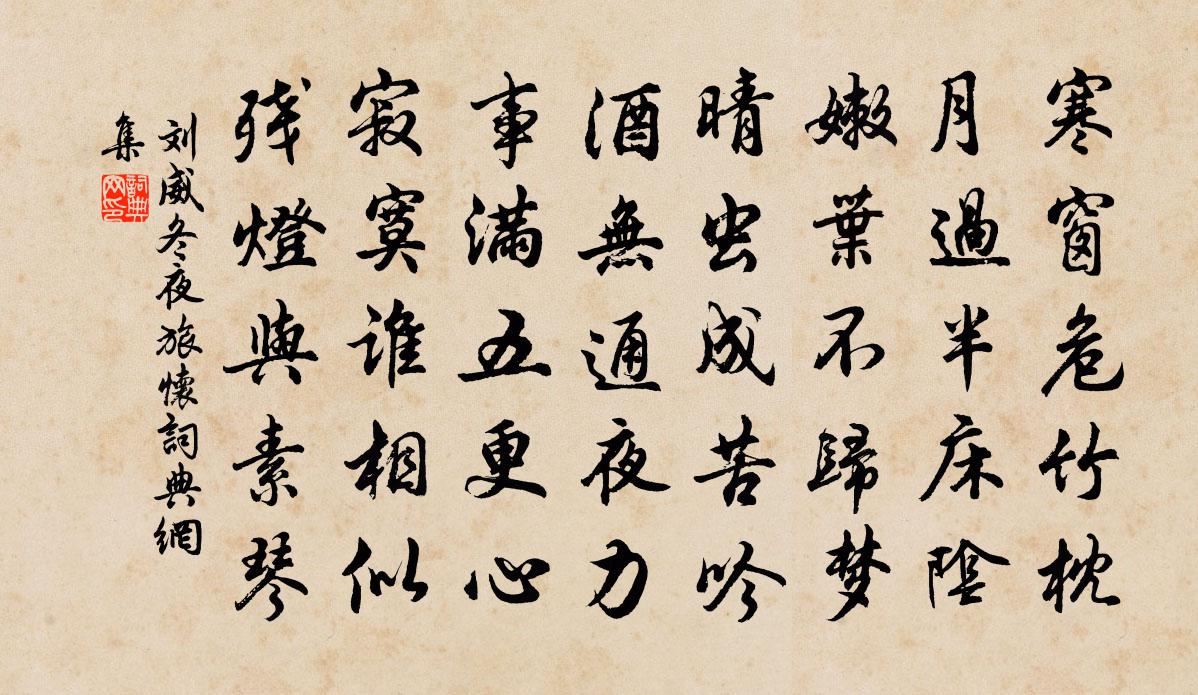 寒窗危竹枕
月過半床陰
嫩葉不歸梦
晴虫成苦吟
酒無通夜力
事滿五更心
寂寞谁相似
残燈與素琴
刘威冬夜旅懷詞典網
集
詞典
网印